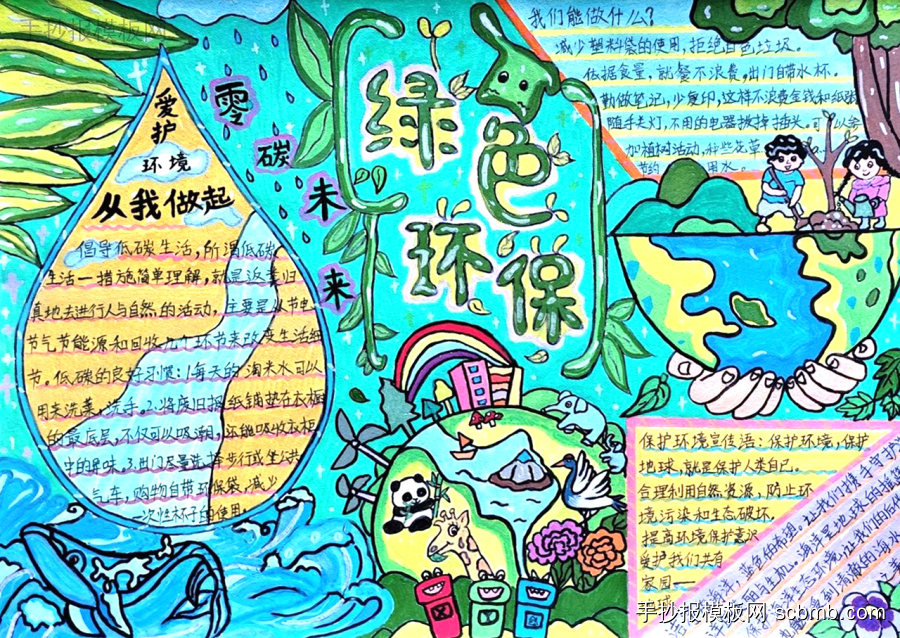 手抄报模板网
绿色环保
零碳未来
爱护
环境
从我做起
倡导低碳生活,所谓低碳
生活一措施简单理解,就是返素归
真地去进行人与自然的活动,主要是从节电
节气节能源和回收九个环节来改变生活细
节。低碳的良好习惯:1.每天的淘米水可以
用来洗菜、洗手。2.将废旧报纸铺垫在衣柜
的最底层,不仅可以吸潮,还能吸收衣柜
中的异味。3.出门尽量选择步行或坐公共
气车,购物自带环保袋,减少
一次性杯子的使用
我们能做什么?
减少塑料袋的使用,拒绝白色垃圾。
依据食量,就餐不浪费,出门自带水杯。
勤做笔记,少复印,这样不浪费金钱和纸张
随手关灯,不用的电器拔掉插头。可以参
加植树活动,种些花草
节约 用水。
保护环境宣传语:保护环境,保护
地球,就是保护人类自己。
合理利用自然资源,防止环
境污染和生态破坏,
提高环境保护意识
爱护我们共有
家园一
地球
让我们携手守护
手抄报模板网 scbmb.com